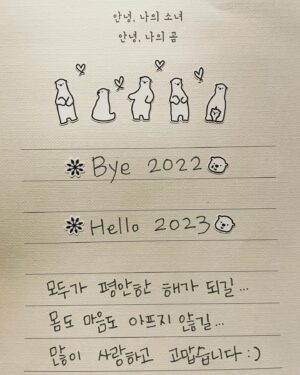 안녕, 나의 소녀
안녕, 나의 곰
Bye 2022
Hello 2023
모두가 평안한 해가 되길...
몸도 마음도 아프지 않길...
많이 사랑하고 고맙습니다 :)